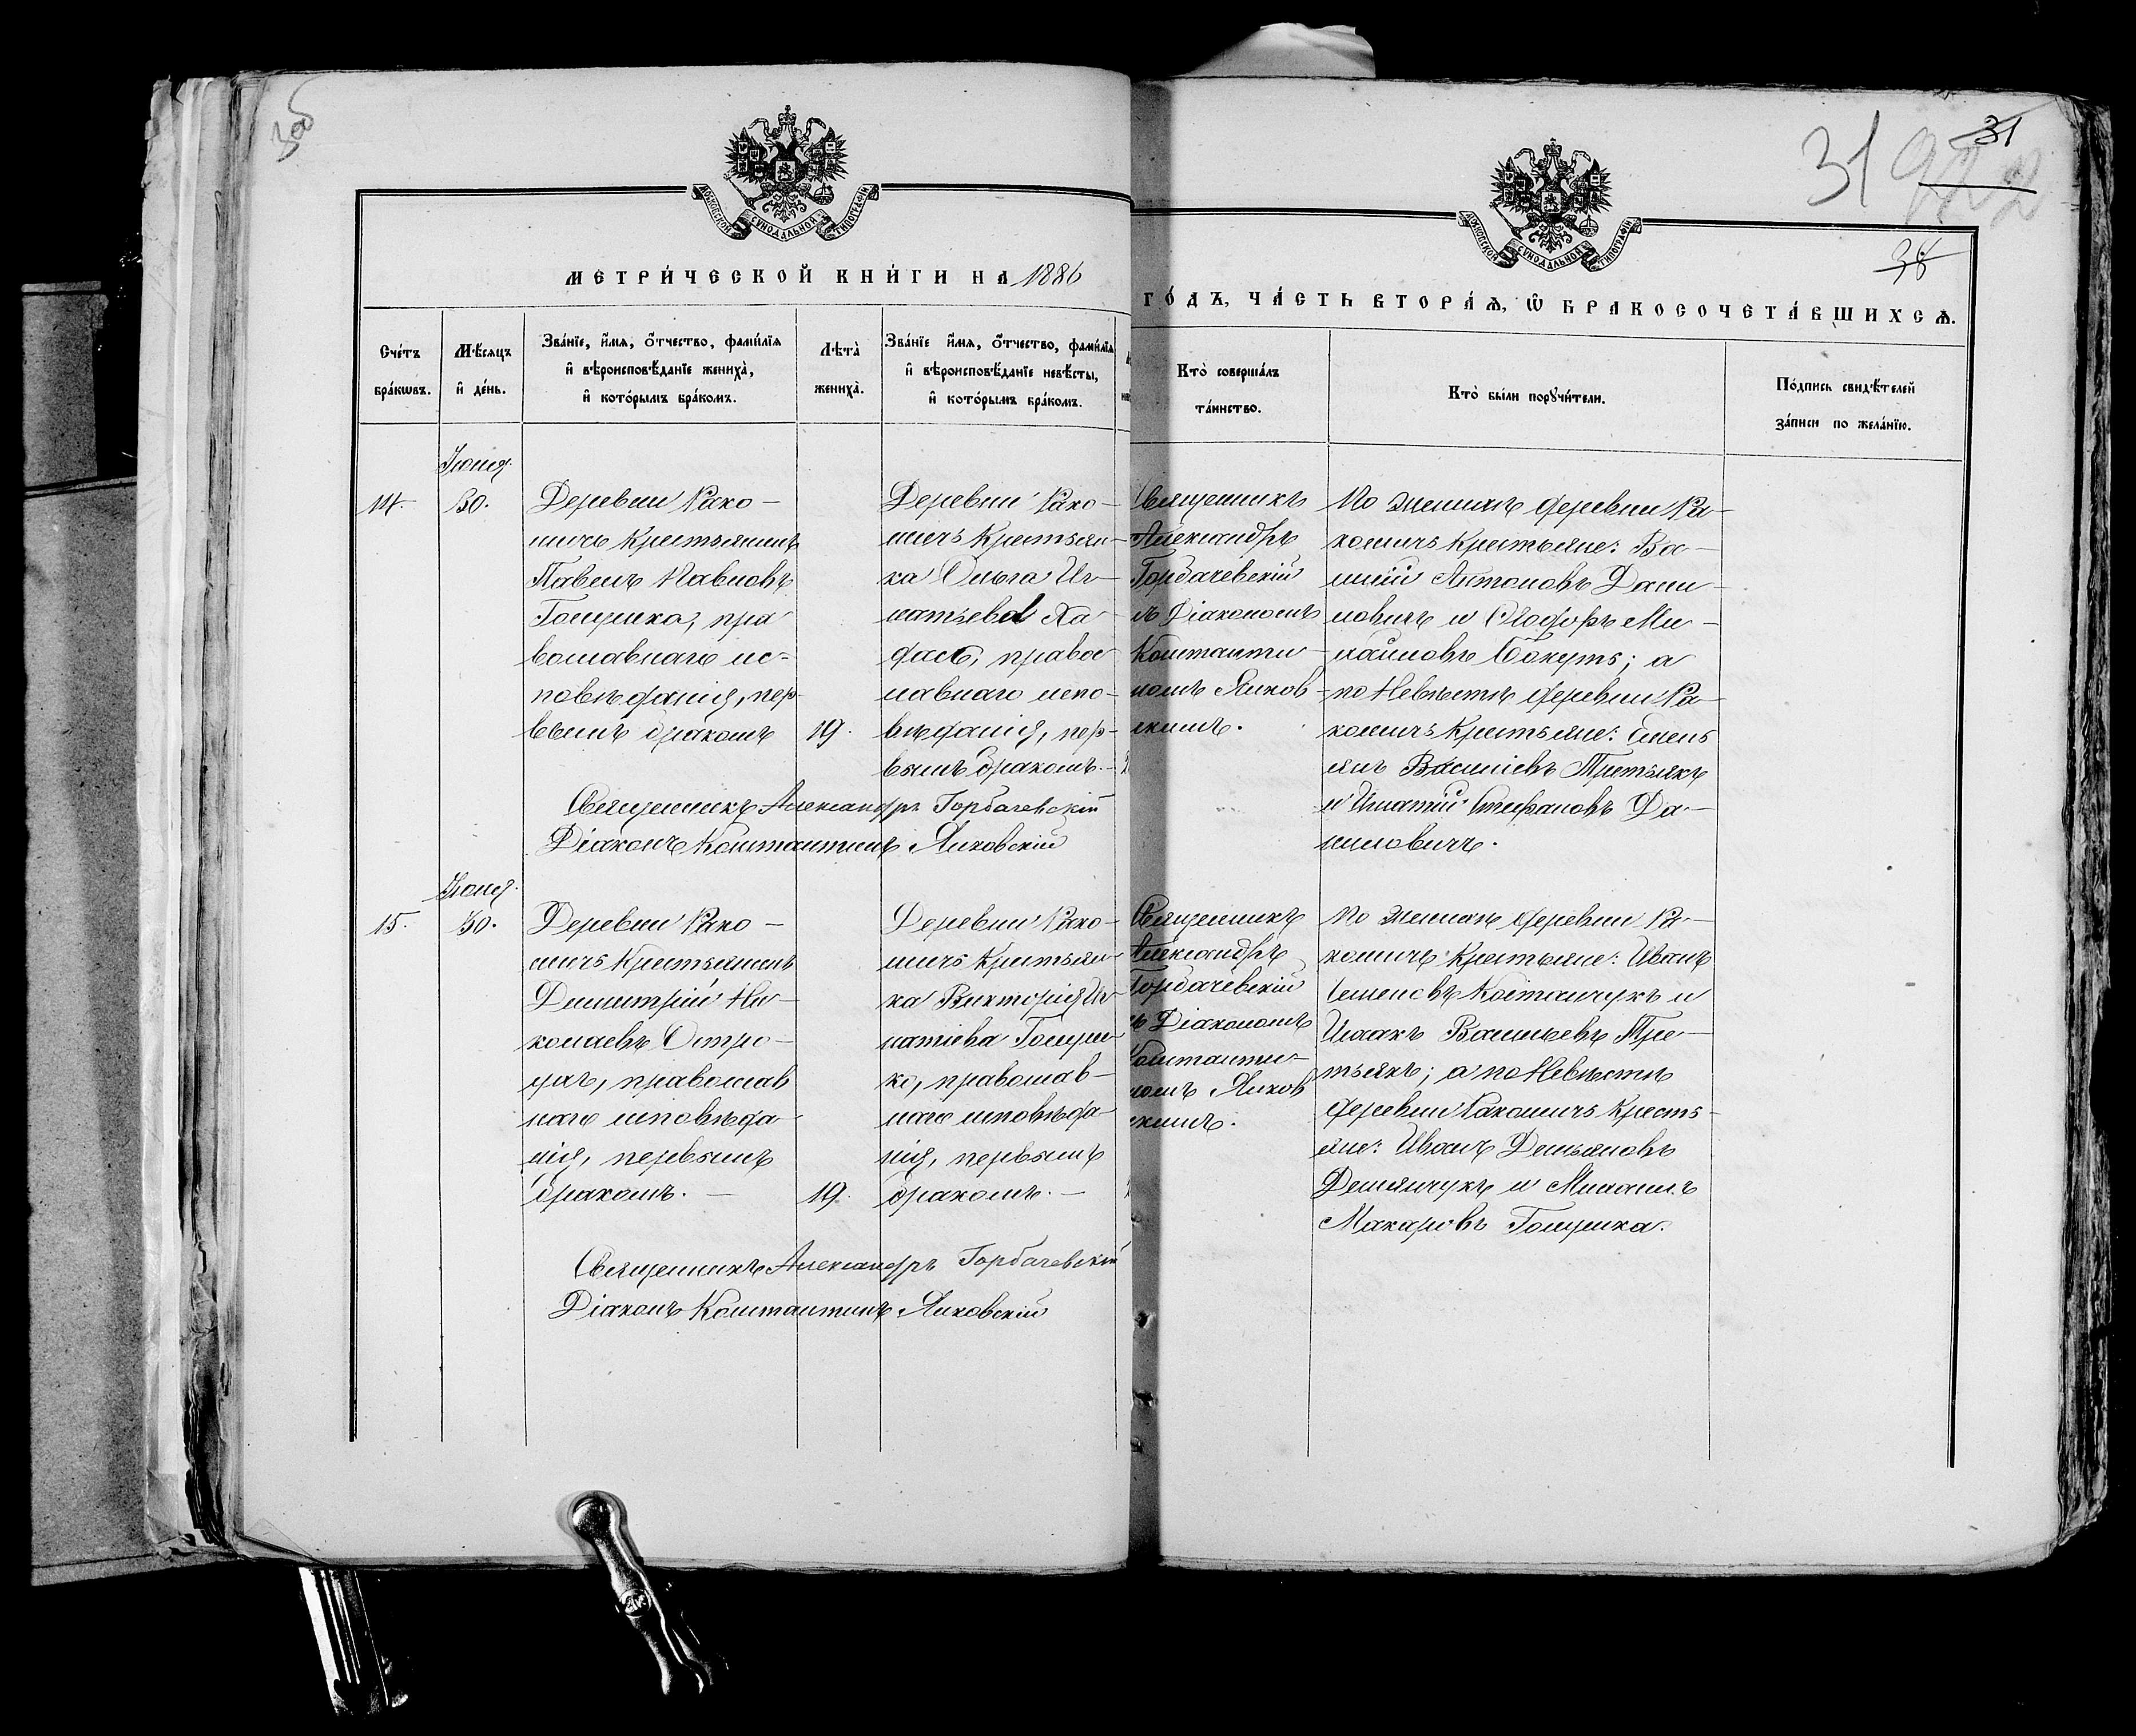 30об
МОСКОВСКОЙ СУНОДАЛЬНОЙ ТИПОГРАФІИ
МЕТРИ́ЧЕСКОЙ КНИ́ГИ НА 1886
Сче́тъ бра́кѡвъ.
Мѣ́сяцъ и҆ де́нь.
Зва́нїе, и҆́мя, ѻ҆́тчество, фами́лїя и҆ вѣроисповѣ́данїе жениха̀, и҆ кото́рымъ бра́комъ.
Лѣта̀ жениха̀.
Зва́нїе и҆́мя, ѻ҆́тчество, фами́лїя и҆ вѣроисповѣ́данїе невѣ́сты, и҆ кото́рымъ бра́комъ.
14.
Іюня
30.
Деревни Рако-
мичъ крестьянинъ
Павелъ Павловъ
Голушко, пра
вославнаго ис-
повѣданія, пер-
вымъ бракомъ
19.
Деревни Рако-
мичъ крестьян-
ка Ольга Иг-
натьева
правос
лавнаго испо-
вѣданія, пер-
вымъ бракомъ.
Священникъ Александръ Горбачевскій
Діаконъ Константинъ Янковскій
15.
Іюня
30.
Деревни Рако-
мичъ крестьянинъ
Димитрій Ни-
колаевъ
православ
наго исповѣда-
нія, первымъ
бракомъ.
19.
Деревни Рако-
мичъ крестьян-
ка Викторія Иг
натіева Голуш-
ко, православ-
наго исповѣда-
нія, первымъ
бракомъ.
Священникъ Александръ Горбачевскій
Діаконъ Константинъ Янковскій
31
31
38
МОСКОВСКОЙ СУНОДАЛЬНОЙ ТИПОГРАФІИ
ГО́ДЪ, ЧА́СТЬ ВТОРА́Ѧ, Ѽ БРАКОСОЧЕТА́ВШИХСѦ.
Кто̀ соверша́лъ та́инство.
Кто̀ бы́ли пороучи́тели.
По́дпись свидѣ́телей за́писи по жела́нїю.
Священникъ
Александръ
Горбачевскій
съ Діакономъ
Константи
номъ Янков-
скимъ.
По женихѣ деревни Ра-
комичъ крестьяне: Ва-
силій Антоновъ Дани-
ловичъ и Ѳеодоръ Ми-
хайловъ а
по невѣстѣ деревни Ра-
комичъ крестьяне: Емель
янъ Василіевъ Третьякъ
и Игнатій Стефановъ Да-
ниловичъ.
Священникъ
Александръ
Горбачевскій
съ Діакономъ
Константи-
номъ Янков
скимъ.
По женихѣ деревни Ра-
комичъ крестьяне: Иванъ
Семеновъ Костанчукъ и
Исаакъ Васильевъ Тре-
тьякъ; а по невѣстѣ
деревни Ракомичъ кресть-
яне: Иванъ Демьяновъ
Демянчукъ и Михаилъ
Макаровъ Голушка.